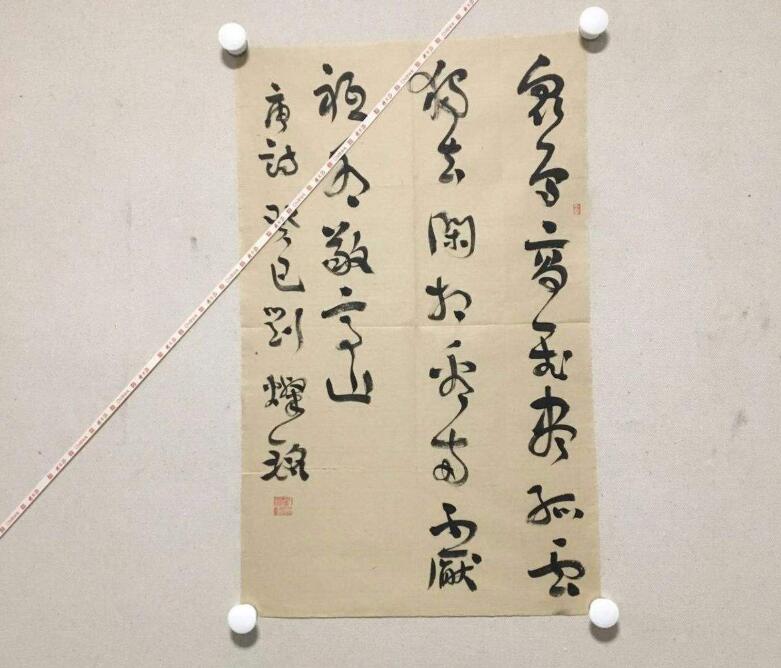 眾鳥高飛盡孤雲
獨去閑相看兩不厭
祇有敬亭山
唐詩 癸巳 劉燦銘